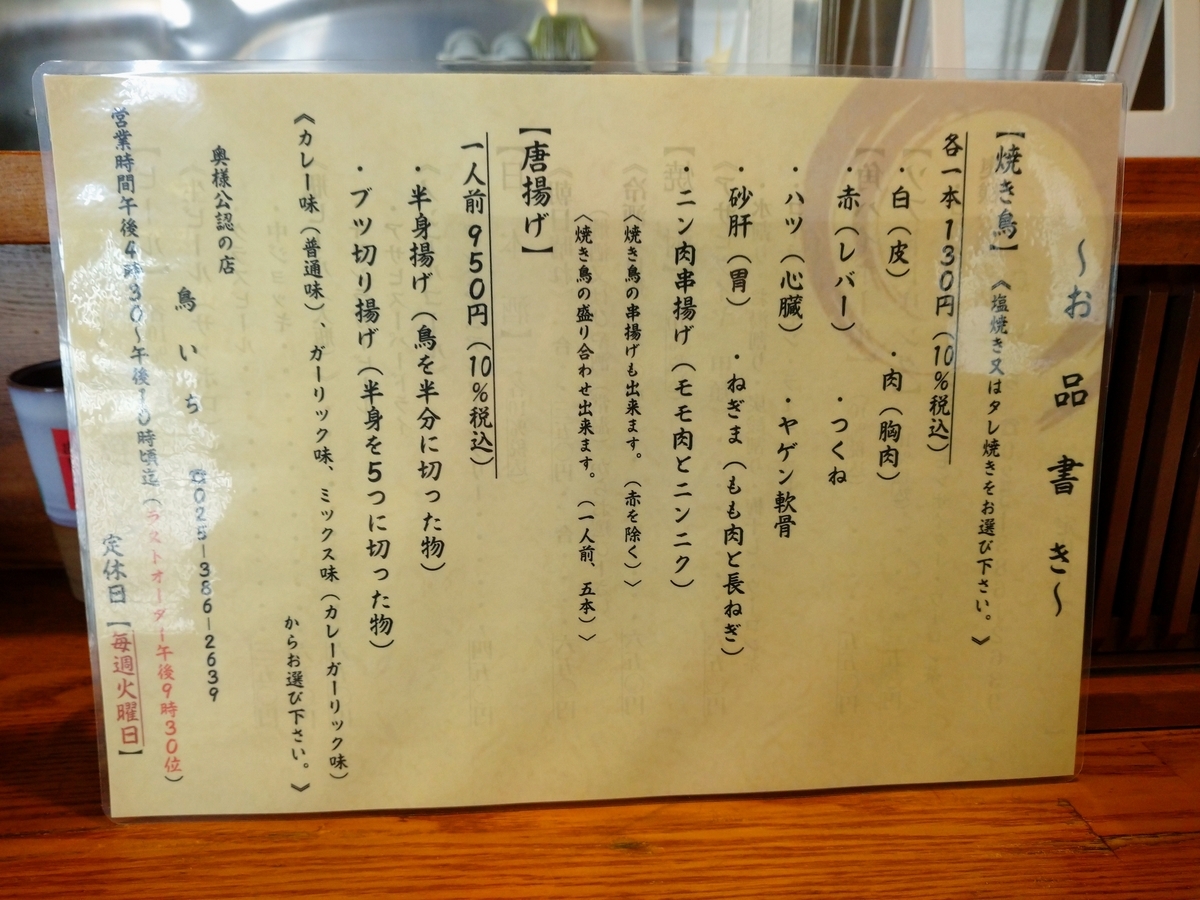 ～お品書き～
【焼き鳥】《塩焼き又はタレ焼きをお選び下さい。》
各一本 130円（10％税込）
・白（皮）　・肉（胸肉）
・赤（レバー）　・つくね
・ハツ（心臓）　・ヤゲン軟骨
・砂肝（胃）　・ねぎま（もも肉と長ねぎ）
・ニン肉串揚げ（モモ肉とニンニク）
〈焼き鳥の串揚げも出来ます。（赤を除く）〉
〈焼き鳥の盛り合わせ出来ます。（一人前、五本）〉
【唐揚げ】
一人前 950円（10％税込）
・半身揚げ（鳥を半分に切った物）
・ブツ切り揚げ（半身を5つに切った物）
《カレー味（普通味）、ガーリック味、ミックス味（カレーガーリック味）
からお選び下さい。》
奥様公認の店
鳥いち　☎025－386－2639
営業時間午後4時30～午後10時頃迄（ラストオーダー午後9時30位）
定休日【毎週火曜日】